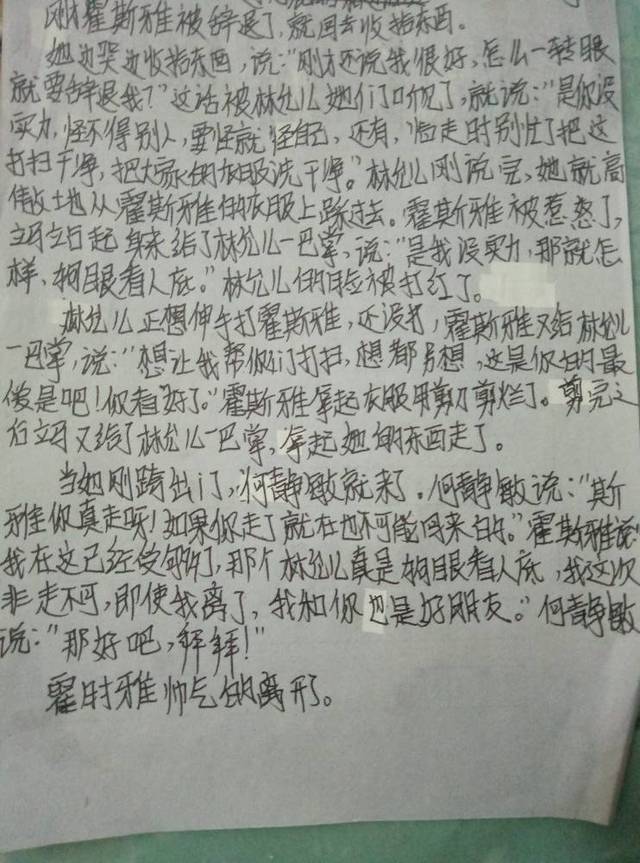 刚才霍斯雅被辞退了,就回去收拾东西。
她边哭边收拾东西,说:"刚才还说我很好,怎么一转眼
就要辞退我?"这话被林允儿她们听见了,就说:"是你没
实力,怪不得别人,要怪就怪自己,还有,临走时别忘了把这
打扫干净,把大家的衣服洗干净。"林允儿刚说完,她就高
傲地从霍斯雅的衣服上踩过去。霍斯雅被惹怒了,
立马站起身来给了林允儿一巴掌,说:"是我没实力,那就怎
样,狗眼看人底。"林允儿的脸被打红了。
林允儿正想伸手打霍斯雅,还没打,霍斯雅又给林允儿
一巴掌,说:"想让我帮你们打扫,想都别想,这是你的最
爱是吧!你看好了。"霍斯雅拿起衣服用剪刀剪烂了。剪完之
后立马又给了林允儿一巴掌,拿起她的东西走了。
当她刚跨出门,何静敏就来了。何静敏说:"斯
雅你真走呀!如果你走了就在也不可能回来的。"霍斯雅说:
我在这已经受够了,那个林允儿真是狗眼看人底,我这次
非走不可,即使我离了,我和你也是好朋友。"何静敏
说:"那好吧,拜拜!"
霍时雅帅气的离开了。